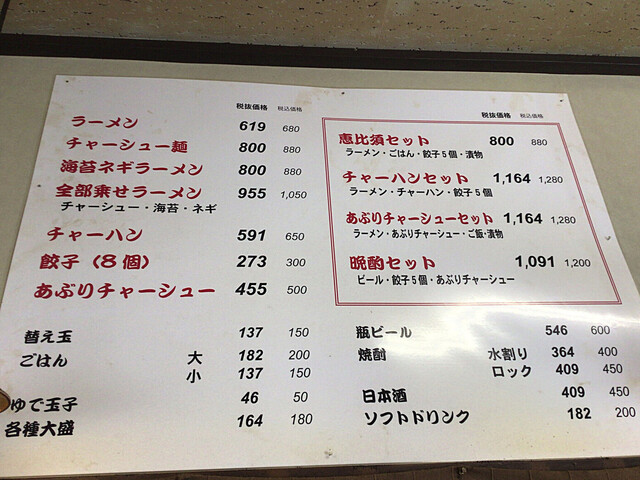 税抜価格 税込価格
ラーメン 619 680
チャーシュー麺 800 880
海苔ネギラーメン 800 880
全部乗せラーメン 955 1,050
チャーシュー・海苔・ネギ
チャーハン 591 650
餃子（8個） 273 300
あぶりチャーシュー 455 500
替え玉 137 150
ごはん 大 182 200
小 137 150
ゆで玉子 46 50
各種大盛 164 180
税抜価格 税込価格
恵比須セット 800 880
ラーメン・ごはん・餃子5個・漬物
チャーハンセット 1,164 1,280
ラーメン・チャーハン・餃子5個
あぶりチャーシューセット 1,164 1,280
ラーメン・あぶりチャーシュー・ご飯・漬物
晩酌セット 1,091 1,200
ビール・餃子5個・あぶりチャーシュー
瓶ビール 546 600
焼酎 水割り 364 400
ロック 409 450
日本酒 409 450
ソフトドリンク 182 200